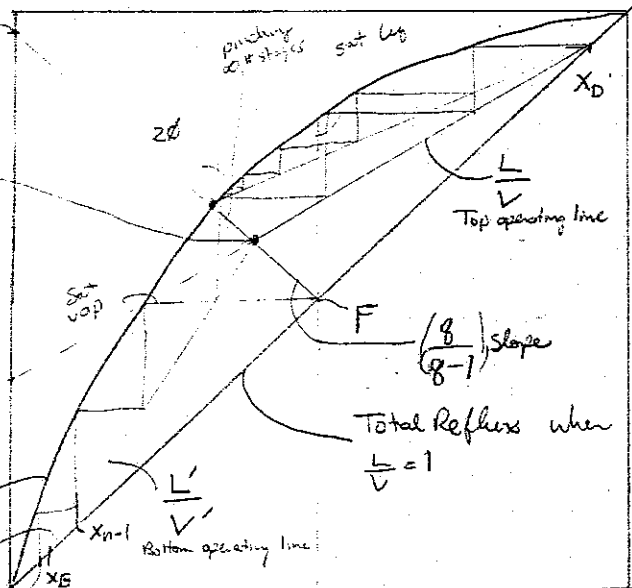 pinching
∞ # stages
sat liq
X_D
2ø
L/V
Top operating line
sat
vap
F
(q/(q-1)) slope
Total Reflux when
L/V = 1
L'/V'
Bottom operating line
X_n-1
X_B